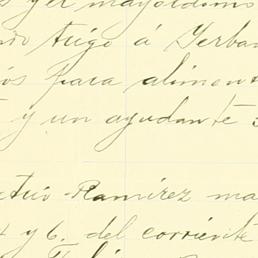 y el mayordomo
trigo á Yerba
para aliment
y un ayudante
Ramírez ma
4 y 6. del corriente